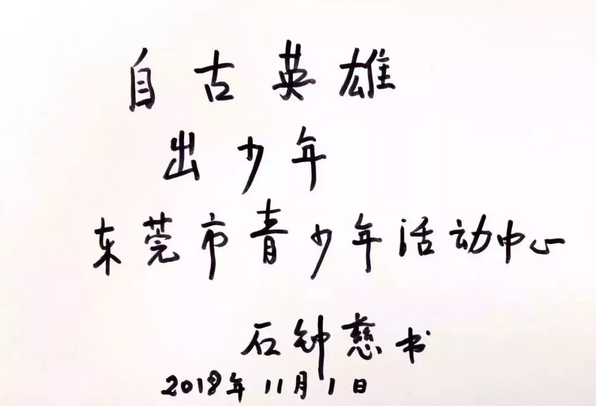 自古英雄
出少年
东莞市青少年活动中心
石钟慈书
2018年11月1日